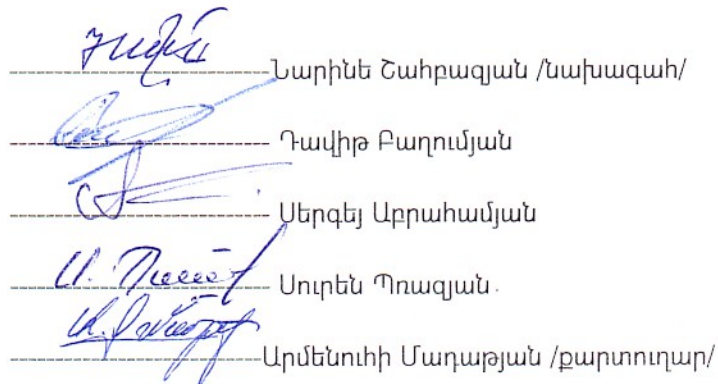 Նարինե Շահբազյան /նախագահ/
Դավիթ Բաղումյան
Սերգեյ Աբրահամյան
Սուրեն Պռազյան
Արմենուհի Մադաթյան /քարտուղար/